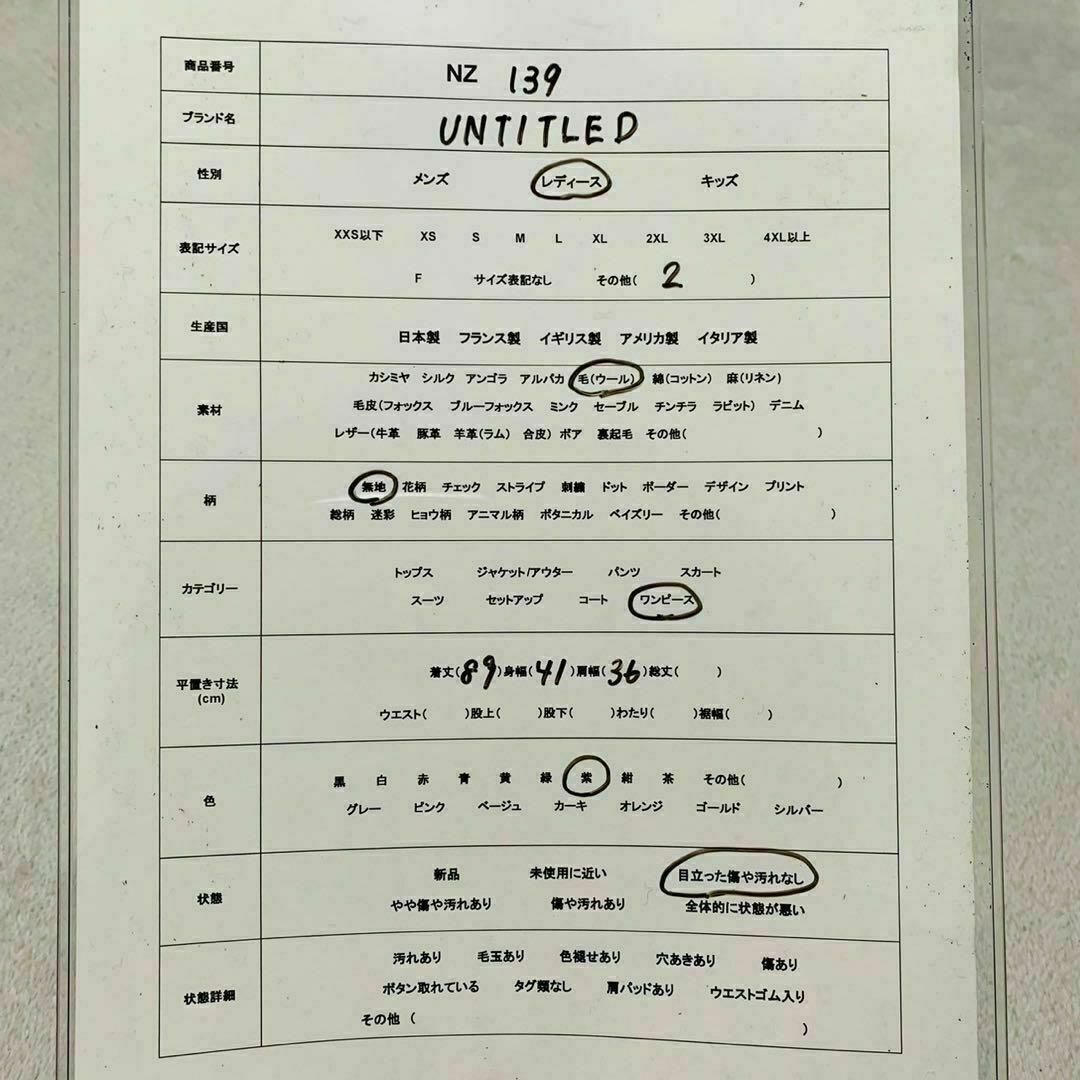 商品番号 NZ 139
ブランド名 UNTITLED
性別 メンズ レディース キッズ
表記サイズ
XXS以下 XS S M L XL 2XL 3XL 4XL以上
F サイズ表記なし その他( 2 )
生産国 日本製 フランス製 イギリス製 アメリカ製 イタリア製
素材
カシミヤ シルク アンゴラ アルパカ 毛(ウール) 綿(コットン) 麻(リネン)
毛皮(フォックス ブルーフォックス ミンク セーブル チンチラ ラビット) デニム
レザー(牛革 豚革 羊革(ラム) 合皮) ボア 裏起毛 その他( )
柄
無地 花柄 チェック ストライプ 刺繍 ドット ボーダー デザイン プリント
総柄 迷彩 ヒョウ柄 アニマル柄 ボタニカル ペイズリー その他( )
カテゴリー
トップス ジャケット/アウター パンツ スカート
スーツ セットアップ コート ワンピース
平置き寸法
(cm)
着丈(89)身幅(41)肩幅(36)総丈( )
ウエスト( )股上( )股下( )わたり( )裾幅( )
色
黒 白 赤 青 黄 緑 紫 紺 茶 その他( )
グレー ピンク ベージュ カーキ オレンジ ゴールド シルバー
状態
新品 未使用に近い 目立った傷や汚れなし
やや傷や汚れあり 傷や汚れあり 全体的に状態が悪い
状態詳細
汚れあり 毛玉あり 色褪せあり 穴あきあり 傷あり
ボタン取れている タグ類なし 肩パッドあり ウエストゴム入り
その他 ( )